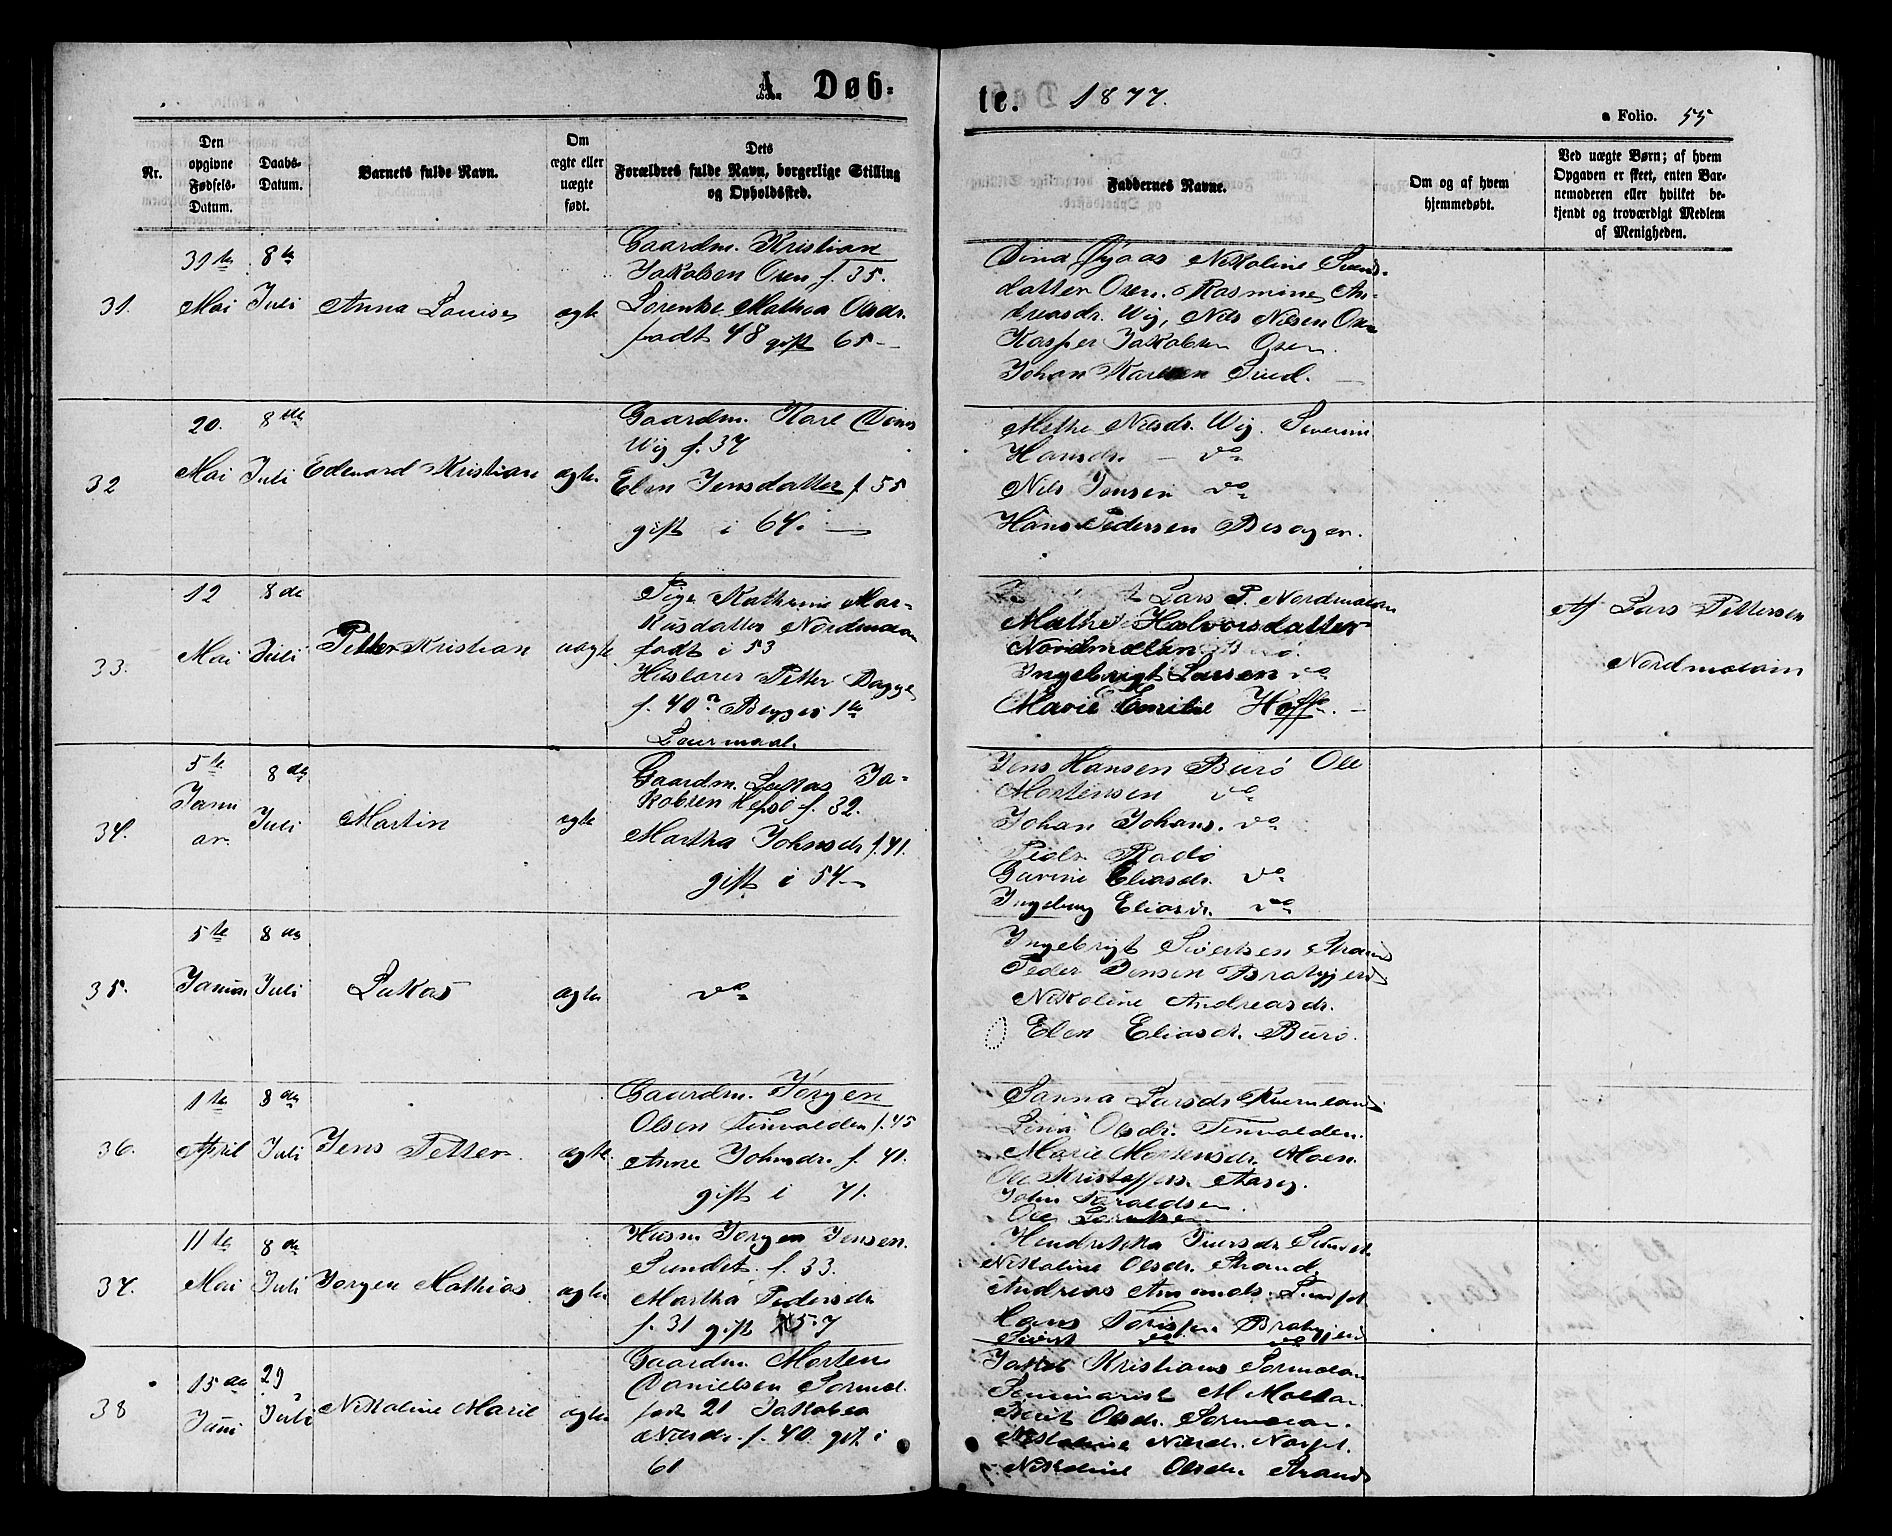 A. Døb=
te. 1877.
a Folio. 55
Nr.
Den opgivne Fødsels-Datum.
Daabs-Datum.
Barnets fulde Navn.
Om ægte eller uægte født.
Dets Forældres fulde Navn, borgerlige Stilling og Opholdssted.
Faddernes Navne.
Om og af hvem hjemmedøbt.
Ved uægte Børn; af hvem Opgaven er skeet, enten Barnemoderen eller hvilket bekjendt og troværdigt Medlem af Menigheden.
31.
31te Mai
8de Juli
Anna Louise
ægte
Gaardm. Kristian
Jakobsen Osen f. 35.
Lorentse Mathea Olsdr.
født 48 gift 65
Nikoline Svends-
datter Osen. Rasmine An-
dreasdr. Wig, Nils Nilsen Osen
Kasper Jakobsen Osen.
Johan Karlsen
32
20. Mai
8de Juli
Edevard Kristian
ægte
Gaardm. Karl
Wig f. 37
Elen Jensdatter f 55
gift i 64.
Methe Nilsdr. Wig. Severine
Hansdr. do
Nils Jensen do
Hans Pedersen Besager.
33.
12 Mai
8de Juli
Petter Kristian
uægte
Pige Kathrine Mar-
kusdatter Nordmelan
født i 53
Petter
f. 40
Lars P. Nordmelan
Methe Halvorsdatter
Nordmelan
Ingebrigt Larsen do
Marie Emilie Hoff.
Af Lars Pettersen
Nordmelan
34.
5te Januar.
8de Juli
Martin
ægte
Gaardm. Lukas Ja-
kobsen Hepsø f. 32.
Martha Johnsdr f. 41.
gift i 54
Jens Hansen Burø Ole
Mortensen do
Johan Johans. do
Peder Radø
Gurine Eliasdr. do
Ingeborg Eliasdr. do
35.
5te Januar
8de Juli
Lukas
ægte
do
Ingebrigt Sivertsen Strand
Peder Jensen
Nikoline Andreasdr.
Elen Eliasdr. Burø.
36.
1te April
8de Juli
Jens Petter
ægte
Gaardm. Jørgen
Olsen Tinvolden f. 45
Anne Johnsdr. f. 41.
gift i 71.
Sanna Larsdr.
Lina Olsdr. Tinvolden.
Marie Mortensdr. Moen.
Ole Kristoffers.
John
Ole Lorentsen
37.
11te Mai
8de Juli
Jørgen Mathias
ægte
Husm. Jørgen Jensen
Sundet. f. 33.
Martha Pedersdr.
f. 31 gift 57
Hendrikka
Nikoline Olsdr. Strand
Andreas
Hans
Sivert do do
38
15de Juni
29 Juli
Nikoline Marie
ægte
Gaardm. Morten
Danielsen Sørmel.
født 21 Jakobea
Nilsdr. f. 40. gift i
61
Jakob Kristians. Sørmelan
Seminarist M.
Berit Olsdr. Sørmelan.
Nikoline Nilsdr.
Nikoline Olsdr. Strand